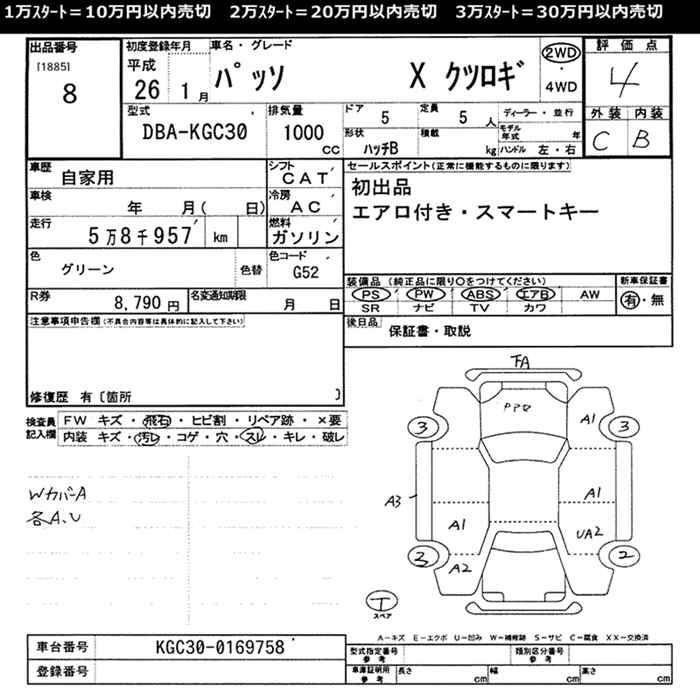 1万ｽﾀｰﾄ＝10万円以内売切　2万ｽﾀｰﾄ＝20万円以内売切　3万ｽﾀｰﾄ＝30万円以内売切
出品番号
[1885]
8
初度登録年月
平成
26 1月
車名・グレード
パッソ X クツロギ
2WD
・
4WD
評価点
4
外装 内装
C B
型式
DBA-KGC30
排気量
1000
cc
ドア
5
定員
5 人
ディーラー・並行
形状
ハッチB
積載
kg
モデル年式 年
ハンドル 左・右
車歴
自家用
シフト
CAT
車検
年 月( 日)
冷房
AC
走行
5万8千957 km
燃料
ガソリン
色
グリーン
色替
色コード
G52
R券
8,790 円
名変通知期限
月 日
セールスポイント(正常に機能するものに限ります)
初出品
エアロ付き・スマートキー
装備品 (純正品に限り○をつけてください)
PS PW ABS エアB AW
SR ナビ TV カワ
新車保証書
有・無
後日品
保証書・取説
注意事項申告欄(不具合内容等は具体的に記入して下さい)
修復歴 有〔箇所 〕
検査員
記入欄
FW キズ・飛石・ヒビ割・リペア跡・×要
内装 キズ・汚レ・コゲ・穴・スレ・キレ・破レ
WカバーA
各A、U
FA
A1
3
3
A3
A1
A1
UA2
3
2
A2
T
スペア
A−キズ E−エクボ U−凹み W−補修跡 S−サビ C−腐食 XX−交換済
車台番号
KGC30-0169758
登録番号
型式指定番号
参考
類別区分番号
参考
車庫証明用
参考
長さ cm
幅 cm
高さ cm